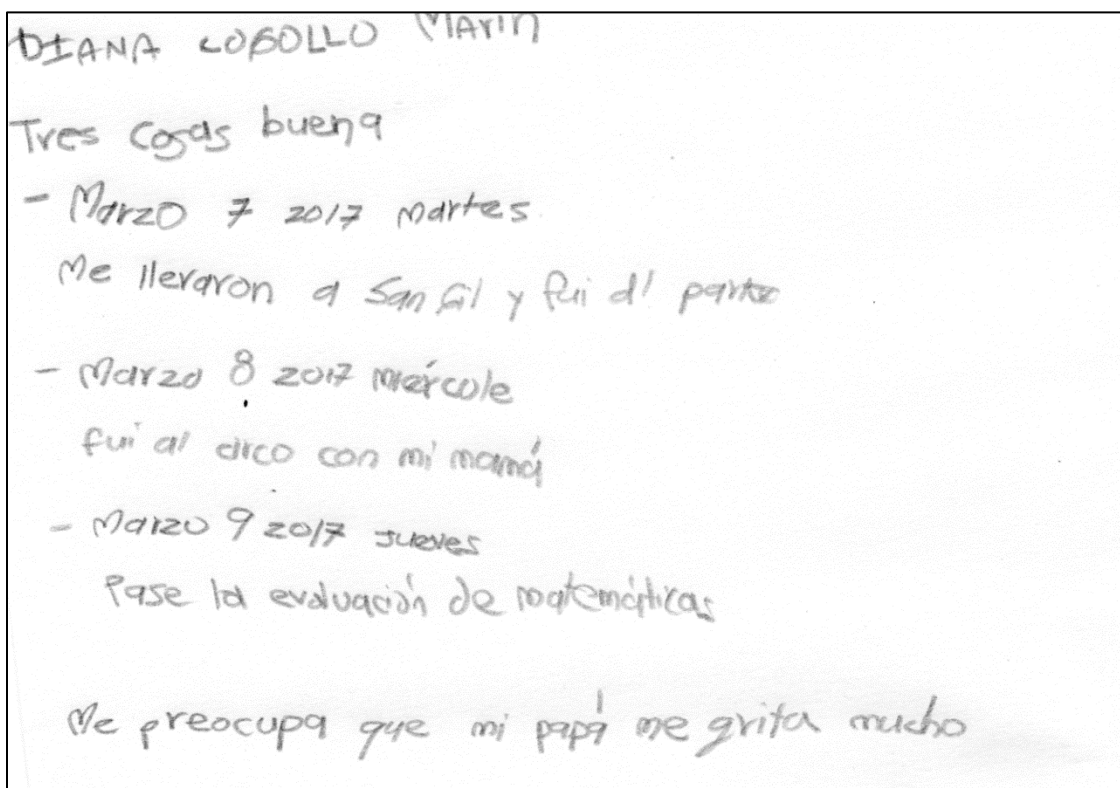 DIANA COGOLLO Marin
Tres cosas buena
- Marzo 7 2017 martes
Me llevaron a San Gil y fui al
- Marzo 8 2017 miércole
fui al circo con mi mamá
- Marzo 9 2017 Jueves
Pase la evaluación de matemáticas
Me preocupa que mi papá me grita mucho